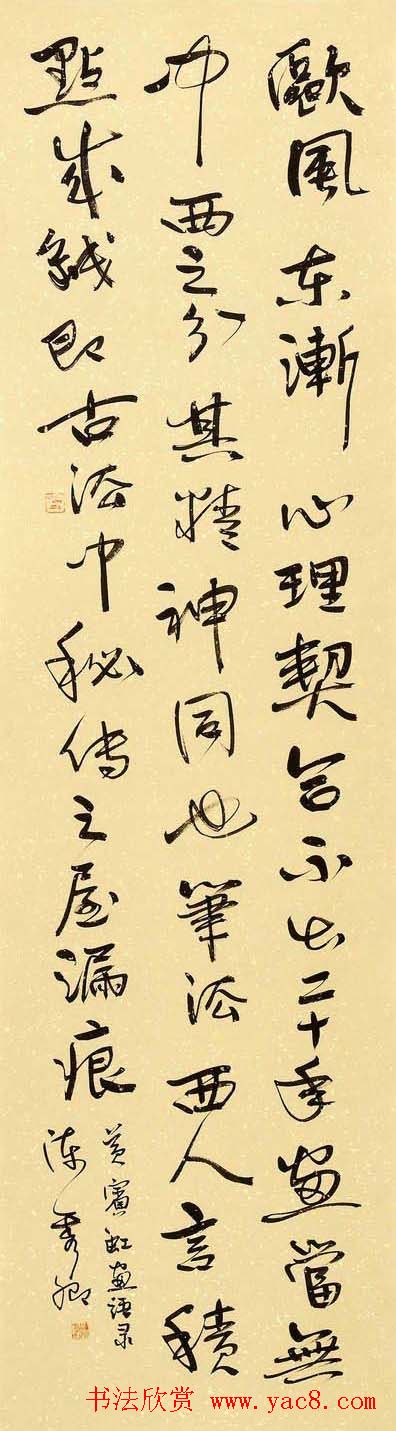 歐風東漸心理契合不出二十年畫當無
中西之分其精神同也筆法西人言積
點成線即古法中秘傳之屋漏痕
黃賓虹畫語录
陳秀卿
书法欣赏 www.yac8.com